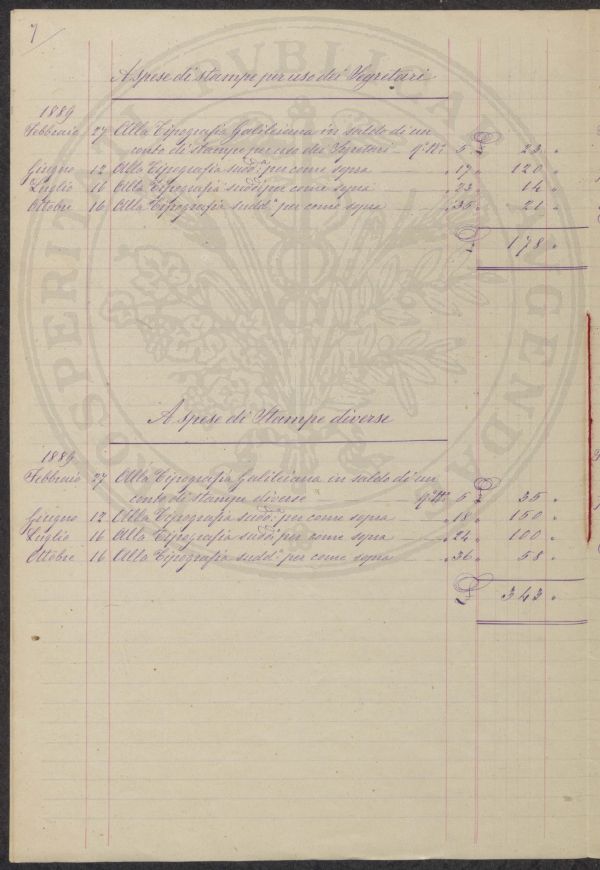 7
A spese di stampe per uso dei Segretari
1889
Febbraio 27 Alla Tipografia Galileiana in saldo di un
conto di stampe per uso dei Segretari 5 £ 23 "
Giugno 12 Alla Tipografia sudd.ª per come sopra " 17 " 120 "
Luglio 16 Alla Tipografia sudd.ª per come sopra " 23 " 14 "
Ottobre 16 Alla Tipografia sudd.ª per come sopra " 35 " 21 "
£ 178 "
A spese di Stampe diverse
1889
Febbraio 27 Alla Tipografia Galileiana in saldo di un
conto di stampe diverse 5 £ 35 "
Giugno 12 Alla Tipografia sudd.ª per come sopra " 18 " 150 "
Luglio 16 Alla Tipografia sudd.ª per come sopra " 24 " 100 "
Ottobre 16 Alla Tipografia sudd.ª per come sopra " 36 " 58 "
£ 343 "